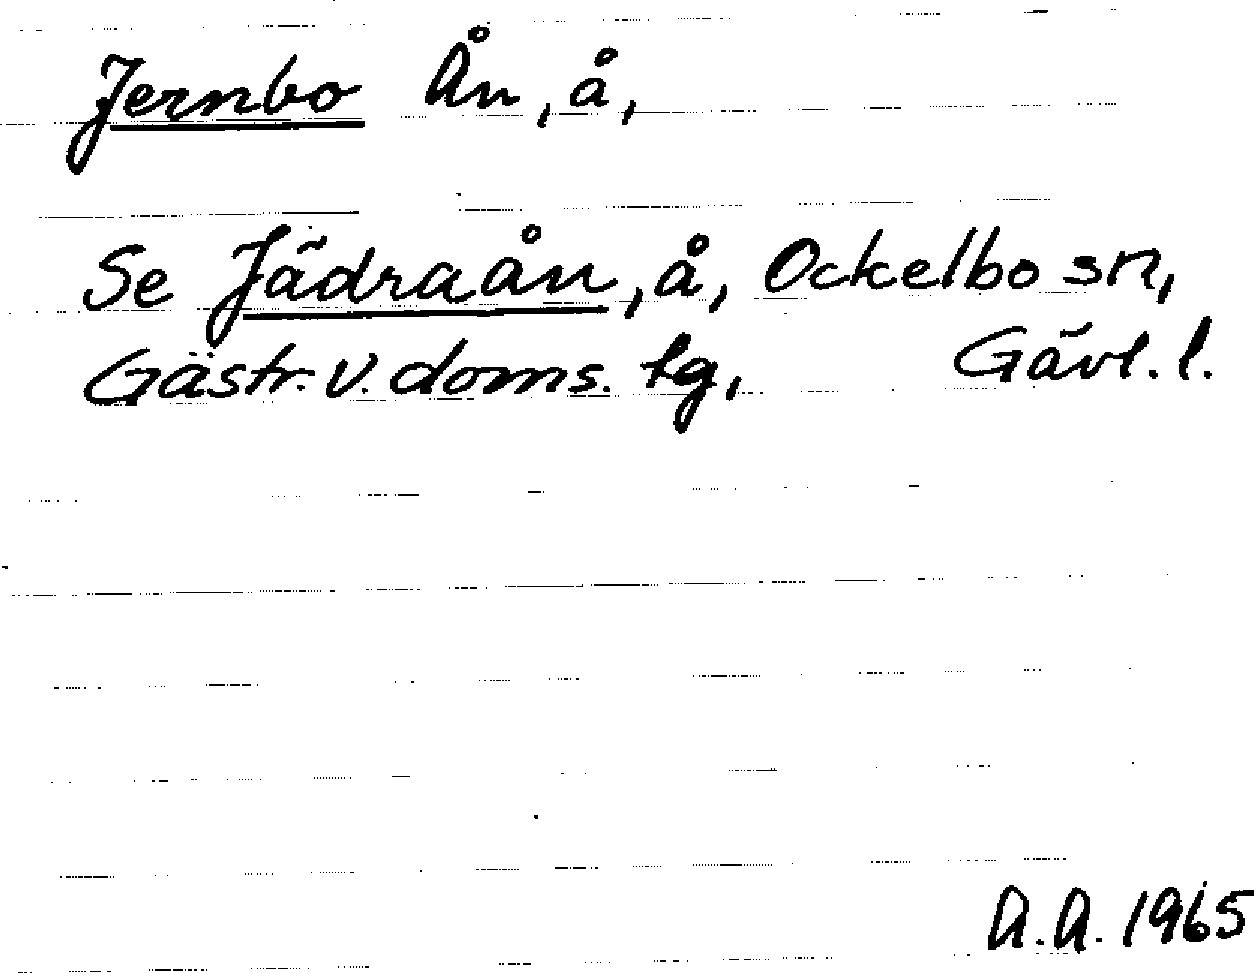 Jernbo Ån, å,
Se Jädraån, å, Ockelbo sn,
Gästr. v. doms. tg, Gävl. l.
A.A. 1965